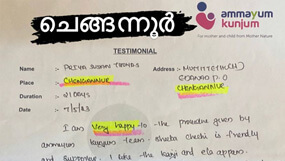 ചെങ്ങന്നൂർ
ammayum
kunjum
For mother and child from Mother Nature
TESTIMONIAL
Name :- PRIYA SUSAN THOMAS
Address :-
Place CHENGANNUR
P.O
CHENGANNUR
Duration :- 21 DAYS
Date :- 7/5/23
I am very happy to the procedure given by
ammayum kunjum team. chechi is friendly
and supportive. I like the kanji and ela appam.